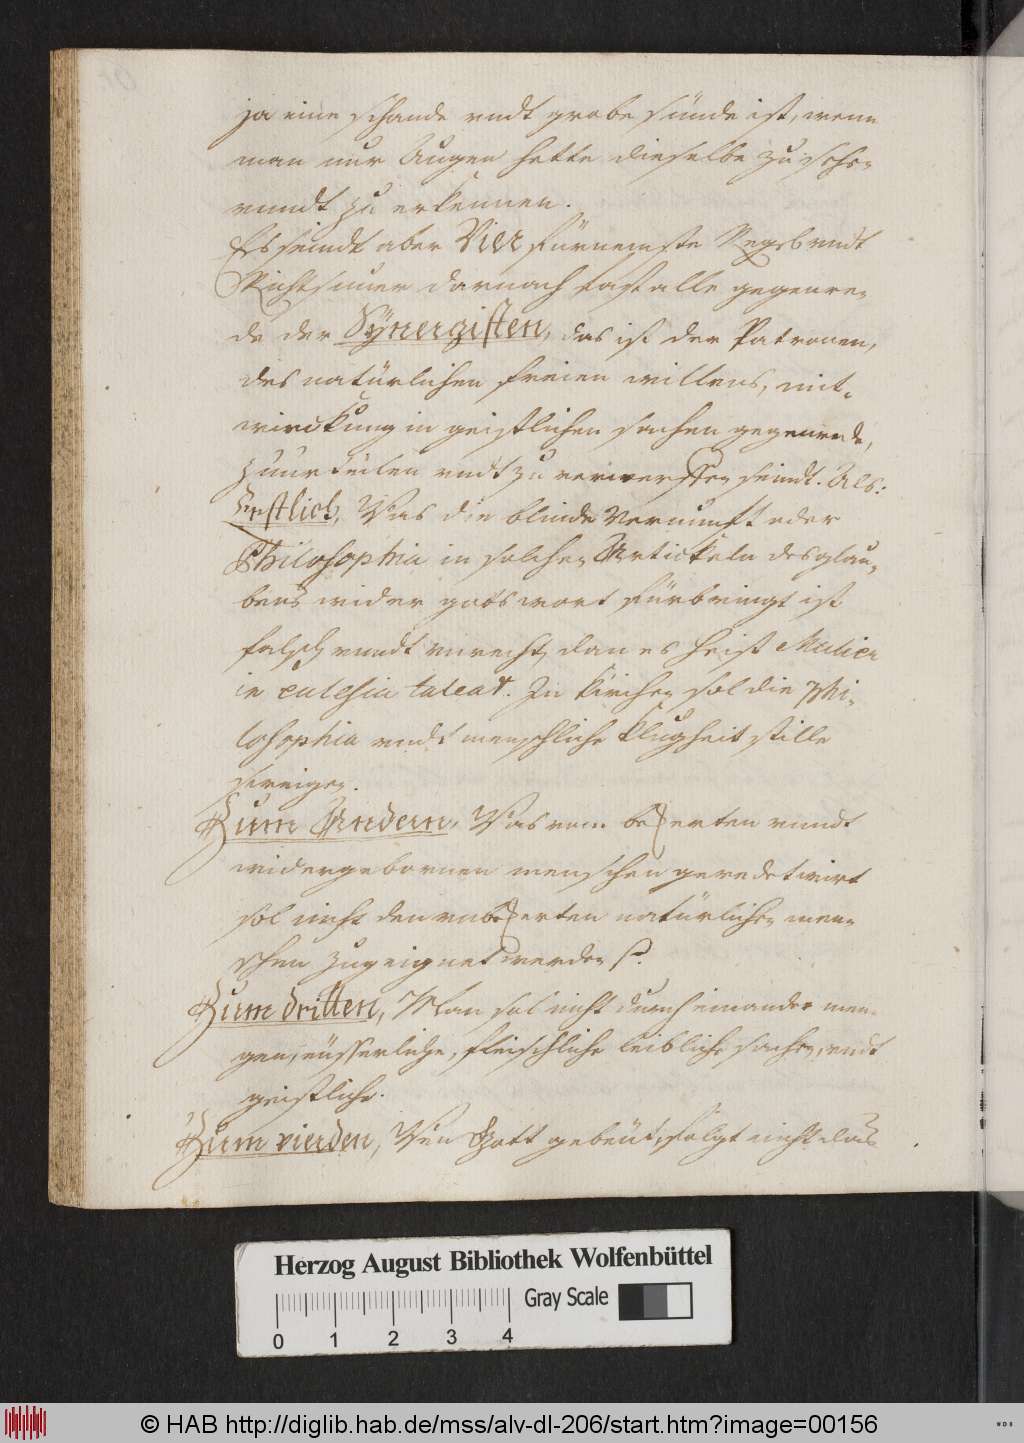 ja eine schande undt grobe sünde ist, wenn
man nur Augen hette dieselbe zu sehen
unndt zu erkennen.
Es seindt aber Vier fürnemste Regeln undt
Richtschnuer darnach fast alle gegenre-
de der Synergisten, das ist der Patronen,
des natürlichen freien willens, mit-
wirckung in geistlichen sachen gegenrede,
zuurteilen undt zu verwerffen seindt. Als:
Erstlich, Was die blinde Vernunft oder
Philosophia in solchen Artickeln des glau-
bens wider gots wort fürbringt ist
falsch unndt unrecht, dan es heist Mulier
in eclesia taceat. In kirchen sol die Phi-
losophia undt menschliche klugheit stille
schweigen.
Zum Andern, Was vom bekerten unndt
widergebornen menschen geredet wirt
sol nicht den unbekerten natürlichen men-
schen zugeeignet werden.
Zum dritten, Man sol nicht durcheinander men-
gen, eüsserliche, fleischliche leibliche sachen, undt
geistliche.
Zum vierden, Wen Gott gebeut, folgt nicht das
Herzog August Bibliothek Wolfenbüttel
0 1 2 3 4
Gray Scale
© HAB http://diglib.hab.de/mss/alv-dl-206/start.htm?image=00156